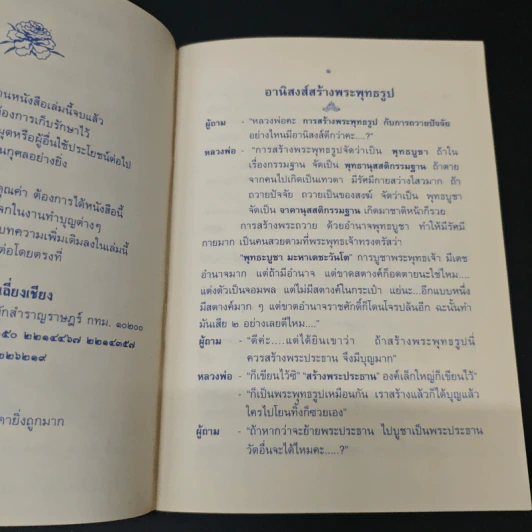 อนหนังสือเล่มนี้จบแล้ว
้องการเก็บรักษาไว้
มุดหรือผู้อื่นใช้ประโยชน์ต่อไป
นกุศลอย่างยิ่ง
คุณค่า ต้องการได้หนังสือนี้
จกในงานทำบุญต่างๆ
บทความเพิ่มเติมลงในเล่มนี้
ต่อโดยตรงที่
เลี่ยงเชียง
ักสำราญราษฎร์ กทม. ๑๐๒๐๐
๒๒๑๔๔๖๗ ๒๒๑๔๓๕๗
๒๖๒๑๙
ตายิ่งถูกมาก
๑
อานิสงส์สร้างพระพุทธรูป
ผู้ถาม - "หลวงพ่อคะ การสร้างพระพุทธรูป กับการถวายปัจจัย
อย่างไหนมีอานิสงส์ดีกว่าคะ....?"
หลวงพ่อ - "การสร้างพระพุทธรูปจัดว่าเป็น พุทธบูชา ถ้าใน
เรื่องกรรมฐาน จัดเป็น พุทธานุสสติกรรมฐาน ถ้าตาย
จากคนไปเกิดเป็นเทวดา มีรัศมีกายสว่างไสวมาก ถ้า
ถวายปัจจัย ถวายเป็นของสงฆ์ จัดว่าเป็น พุทธบูชา
จัดเป็น จาคานุสสติกรรมฐาน เกิดมาชาติหน้าก็รวย
การสร้างพระถวาย ด้วยอำนาจพุทธบูชา ทำให้มีรัศมี
กายมาก เป็นคนสวยตามที่พระพุทธเจ้าทรงตรัสว่า
"พุทธะบูชา มะหาเตชะวันโต" การบูชาพระพุทธเจ้า มีเดช
อำนาจมาก แต่ถ้ามีอำนาจ แต่ขาดสตางค์ก็อดตายนะใช่ไหม....
แต่งตัวเป็นจอมพล แต่ไม่มีสตางค์ในกระเป๋า แย่นะ...อีกแบบหนึ่ง
มีสตางค์มาก ๆ แต่ขาดอำนาจราชศักดิ์ก็โดนโจรปล้นอีก ฉะนั้นทำ
มันเสีย ๒ อย่างเลยดีไหม...."
ผู้ถาม - "ดีค่ะ....แต่ได้ยินเขาว่า ถ้าสร้างพระพุทธรูปนี่
ควรสร้างพระประธาน จึงมีบุญมาก"
หลวงพ่อ - "ก็เขียนไว้ซิ "สร้างพระประธาน" องค์เล็กใหญ่ก็เขียนไว้"
- "ก็เป็นพระพุทธรูปเหมือนกัน เราสร้างแล้วก็ได้บุญแล้ว
ใครไปโยนทิ้งก็ซวยเอง"
ผู้ถาม - "ถ้าหากว่าจะย้ายพระประธาน ไปบูชาเป็นพระประธาน
วัดอื่นจะได้ไหมคะ.....?"